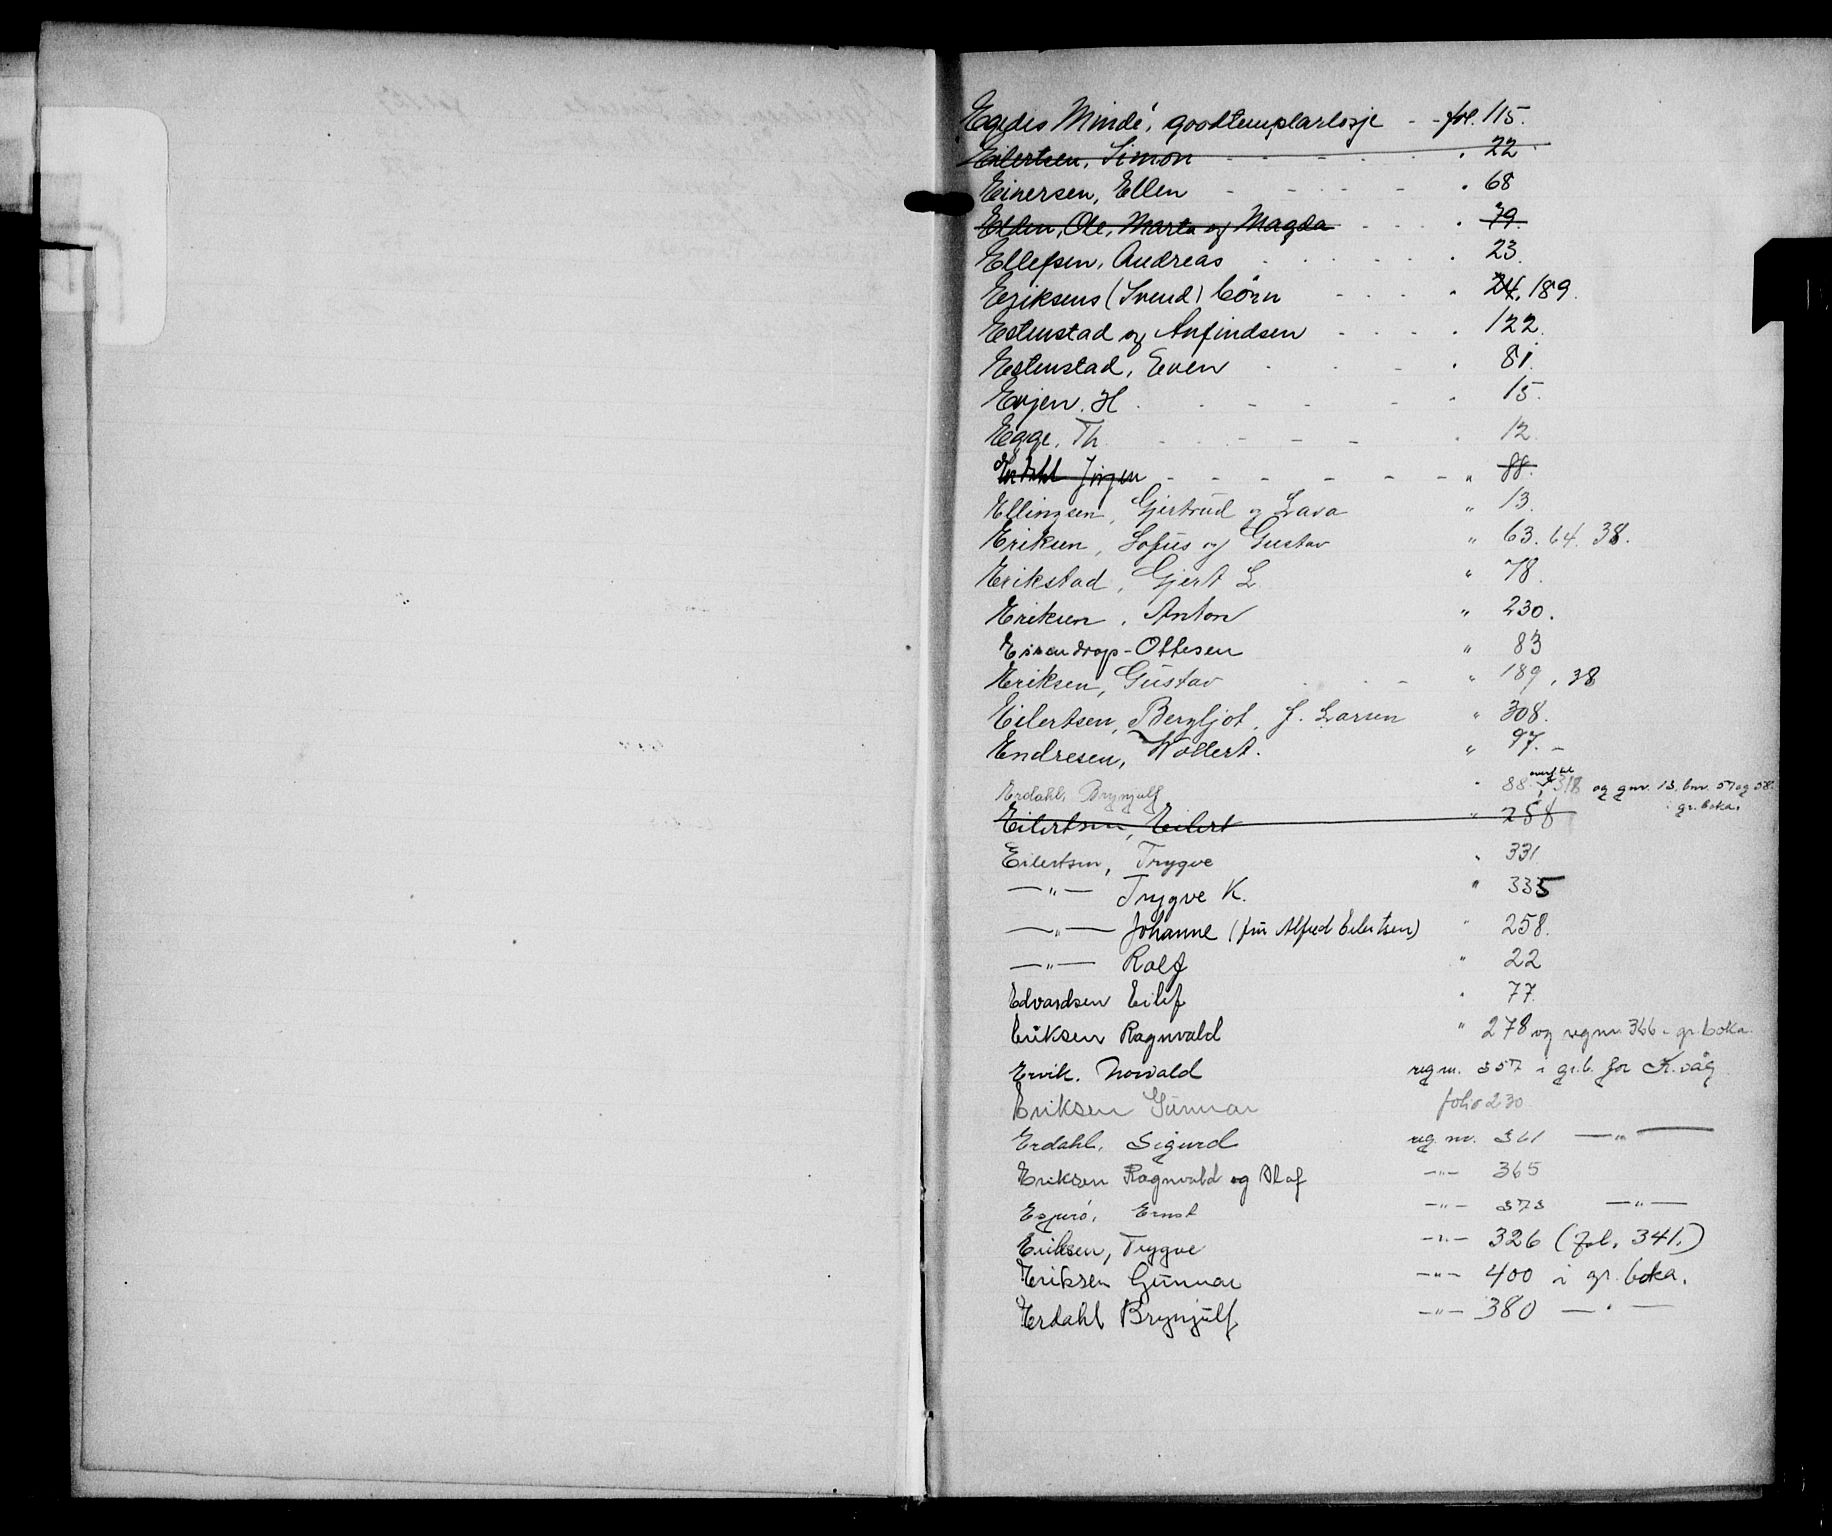 Egedes Minde, goodtemplarlosje - - fol. 115.
Eilertsen, Simon - - - - . 22
Einersen, Ellen - - - - . 68
Elden, Ole, Marta og Magda - - - . 79.
Ellefsen, Andreas - - - - . 23.
Eriksens (Svend) börn - - - . 24, 189.
Estenstad og Anfindsen - - - . 122.
Estenstad, Even - - - . 81.
Evjen, H. - - - - - . 15.
Egge, Th. - - - - - . 12.
Erdahl Jörgen - - - - - - " 88.
Ellingsen, Gjertrud og Lava " 13.
Eriksen, Sofus og Gustav " 63. 64. 38.
Erikstad, Gjert L. " 78.
Eriksen, Anton " 230.
Eisendrop-Ottesen " 83
Eriksen, Gustav - - - " 189, 38
Eilertsen, Bergljot, f. Larsen " 308.
Endresen, Wollert. " 97. -
Erdahl, Brynjulf " 88. overf. til 318 og gnr. 13, bnr. 57 og 58
i gr.boka.
Eilertsen, Eilert " 258
Eilertsen, Trygve " 331
—"— Trygve K. " 335
—"— Johanne (fru Alfred Eilertsen) " 258.
—"— Rolf " 22
Edvardsen Eilif " 77.
Eriksen Ragnvald " 278 og regnr. 366 i gr.boka.
Ervik, Norvald reg nr. 357 i gr.b. for K.våg
Eriksen Gunnar folio 230
Erdahl, Sigurd reg. nr. 361 —"—
Eriksen Ragnvald og Olaf -"- 365
Ernst -"- 373 —"—
Eriksen, Trygve -"- 326 (fol. 341.)
Eriksen Gunnar -"- 400 i gr. boka.
Erdahl Brynjulf -"- 380 —"—